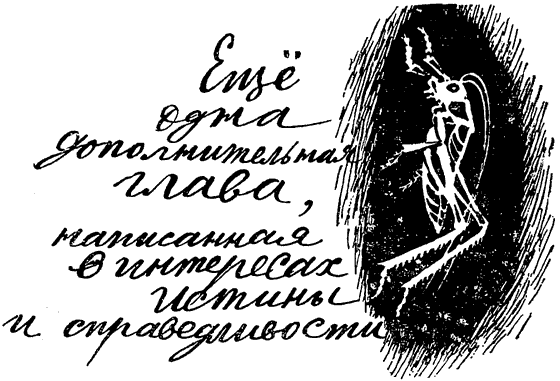 Ещё
одна
дополнительная
глава,
написанная
в интересах
истины
и справедливости